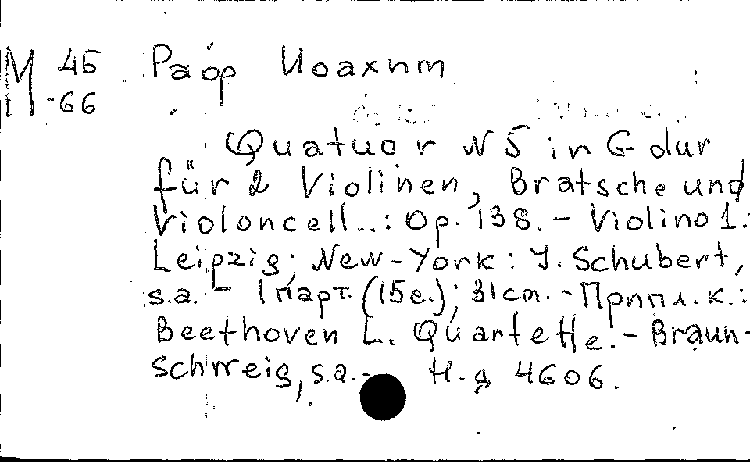 М 45 Рафф Иоахим
-66
Quatuor N 5 in G dur
für 2 Violinen, Bratsche und
Violoncell..: Op. 138. - Violino 1.:
Leipzig; New-York: J. Schubert,
s.a. - 1 парт. (15 с.); 31 см. - Припл. к.:
Beethoven L. Quartette. - Braun-
schweig, s.a. - Н.д 4606.